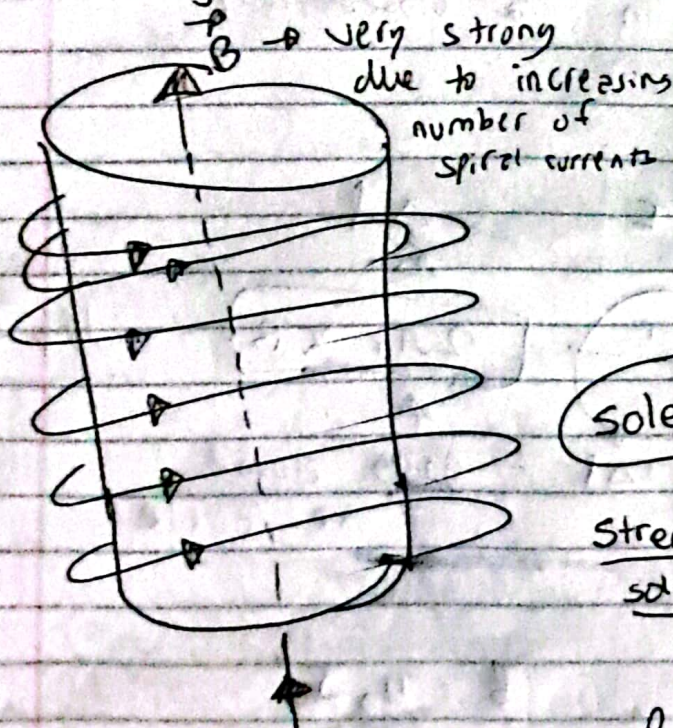 B → very strong
due to increasing
number of
spiral currents
sole
Stre
sol